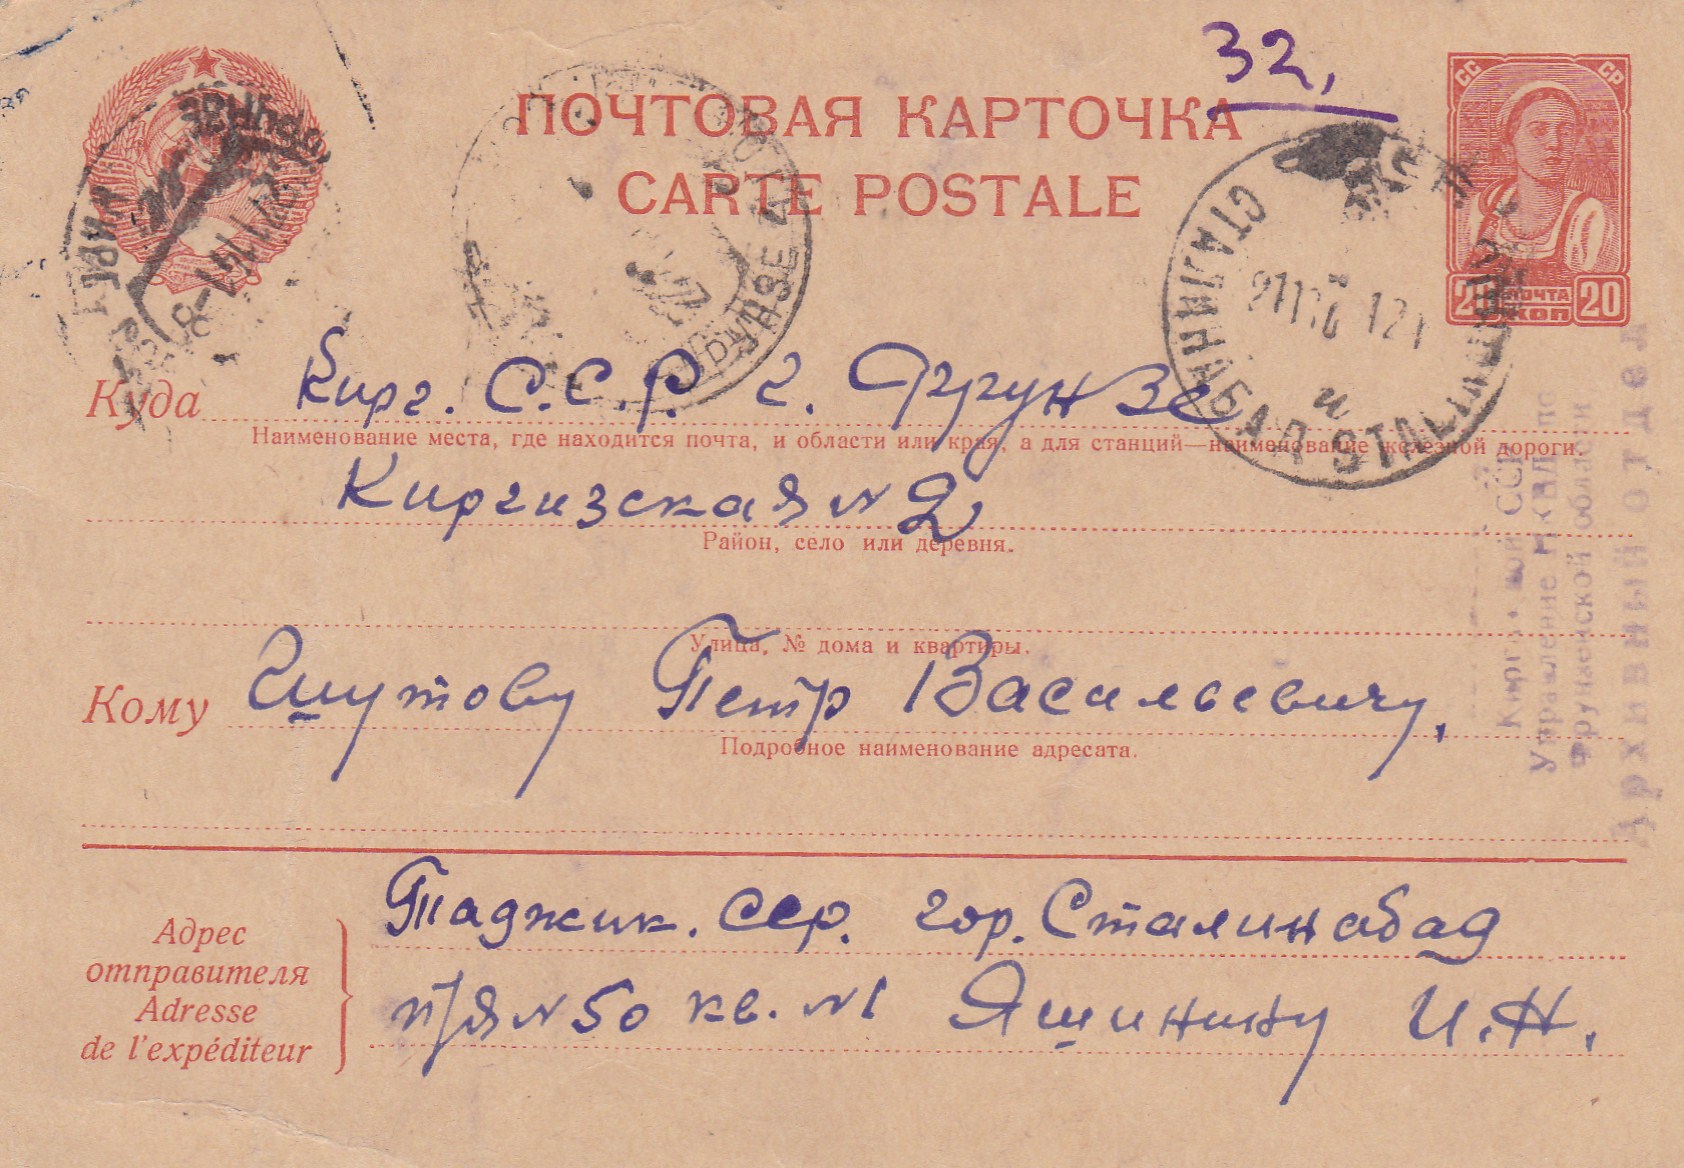 32,
СС СР
ПОЧТОВАЯ КАРТОЧКА
CARTE POSTALE
20 ПОЧТА 20
КОП
ФРУНЗЕ
СТАЛИНАБАД STALINABAD
Куда Кирг. С.С.Р. г. Фрунзе
Наименование места, где находится почта, и области или края, а для станций—наименование железной дороги.
Киргизская N 2
Район, село или деревня.
Улица, № дома и квартиры.
Кому Петр Васильевичу,
Подробное наименование адресата.
Адрес
отправителя
Adresse
de l'expéditeur
Таджик. ССР. гор. Сталинабад
п/я N 50 кв. N1 Яшинину И.Н.
ССР
Управление НКВД по
Фрунзенской области
Архивный отдел